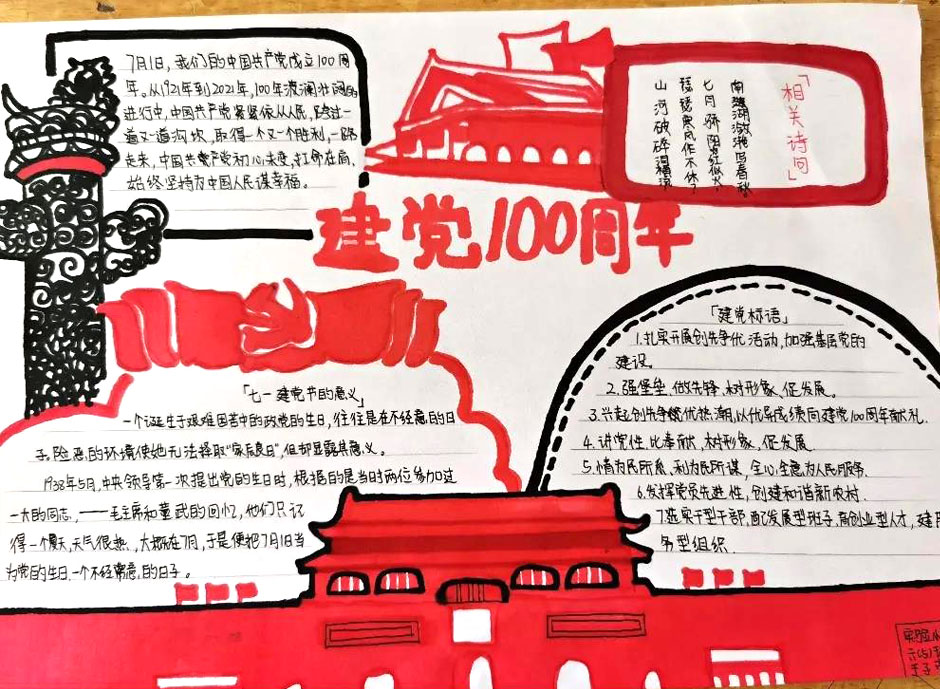 7月1日，我们的中国共产党成立100周
年。从1921年到2021年，100年波澜壮阔的
进行中，中国共产党紧紧依从人民，跨过一
道又一道沟坎，取得一个又一个胜利，一路
走来，中国共产党初心未变，扛命在肩，
始终坚持为中国人民谋幸福。
「相关诗词」
南湖激滟写春秋，
七月骄阳红似火，
瑟瑟寒风作不休，
山河破碎
建党100周年
「七一建党节的意义」
一个诞生于艰难困苦中的政党的生日，往往是在不经意的日
子。险恶的环境使她无法择取“家辰良日”，但却显露其意义。
1938年5月，中央领导第一次提出党的生日时，根据的是当时两位参加过
一大的同志，——毛主席和董武的回忆，他们只记
得一个夏天，天气很热，大概在7月，于是便把7月1日当
为党的生日，一个不经意的日子。
「建党标语」
1.扎实开展创先争优活动，加强基层党的
建设。
2.强堡垒，做先锋，树形象，促发展。
3.兴起创先争优热潮，以优异成绩向建党100周年献礼.
4.讲党性，比奉献，树形象，促发展.
5.情为民所系，利为民所谋，全心全意为人民服务.
6.发挥党员先进性，创建和谐新农村.
7.选实干型干部，配发展型班子，育创业型人才，建服
务型组织.